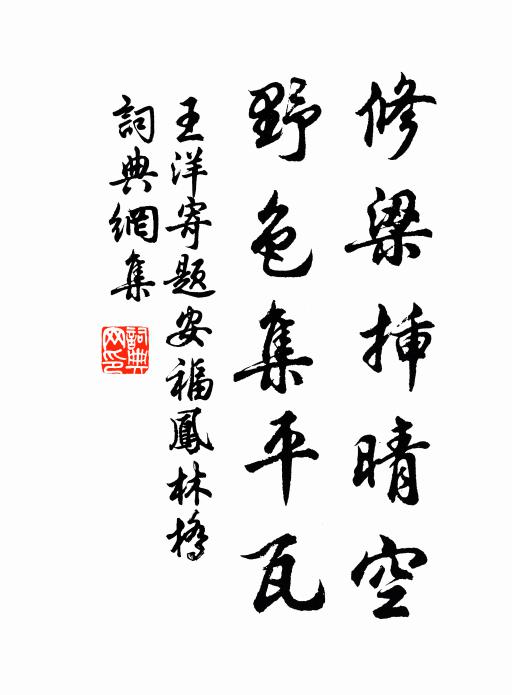 修梁插晴空
野色集平瓦
王洋寄題安福鳳林橋
詞典網集
詞典
网印